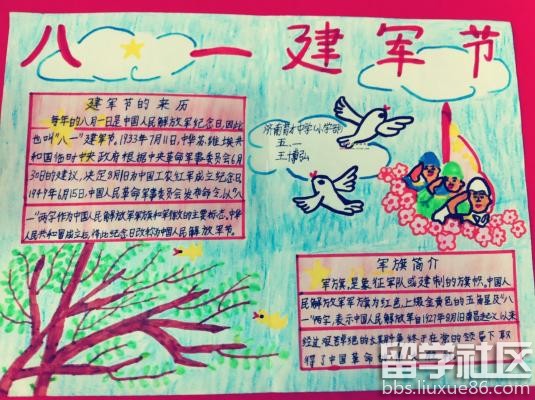 八一建军节
建军节的来历
每年的八月一日是中国人民解放军纪念日,因此
也叫“八一”建军节。1933年7月11日,中华苏维埃共
和国临时中央政府根据中央革命军事委员会6月
30日的建议,决定8月1日为中国工农红军成立纪念日
1949年6月15日,中国人民革命军事委员会发布命令,以“八
一”两字作为中国人民解放军军旗和军徽的主要标志。中华
人民共和国成立后,将此纪念日改称为中国人民解放军建军节。
济南育才中学(小学部)
五.一
王博弘
军旗简介
军旗,是象征军队或建制的旗帜。中国人
民解放军军旗为红色上缀金黄色的五角星及“八一
”两字,表示中国人民解放军自1927年8月1日南昌起义以来
经过艰苦卓绝的 终于在党的领导下取
得了中国革命
留学社区
bbs.liuxue86.com